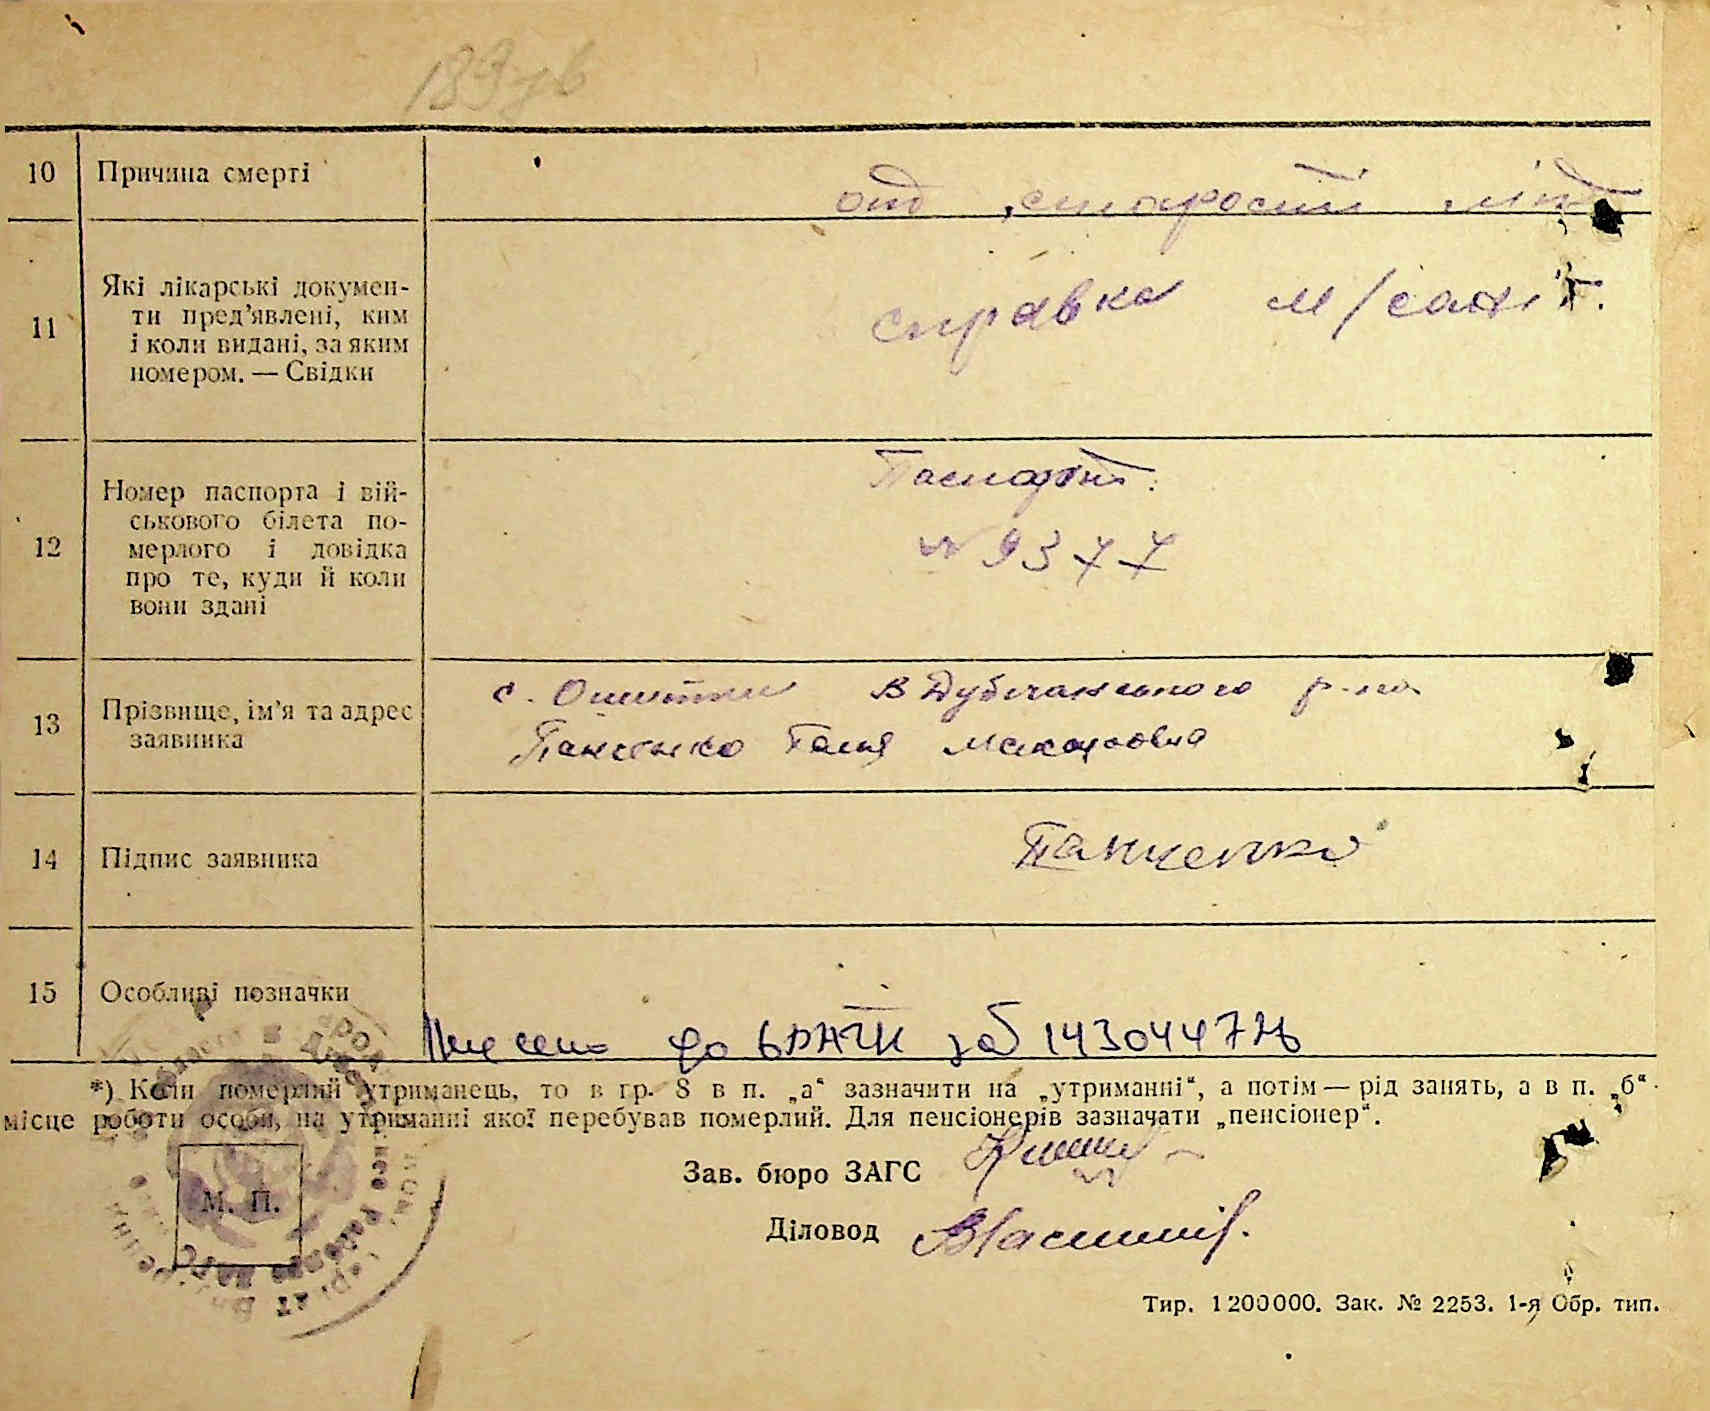 10 Причина смерті од старости літ
11 Які лікарські докумен-
ти пред’явлені, ким
і коли видані, за яким
номером. — Свідки
справка м/саніт.
12 Номер паспорта і вій-
ськового білета по-
мерлого і довідка
про те, куди й коли
вони здані
Паспорт.
№ 9377
13 Прізвище, ім’я та адрес
заявника
с. Ошитки В Дубечанського р-на
Панченко Галя Макаровна
14 Підпис заявника Панченко
15 Особливі позначки
Внесено до ДРАЦС 14304477
*) Коли померлий утриманець, то в гр. 8 в п. „а“ зазначити на „утриманні“, а потім — рід занять, а в п. „б“
місце роботи особи, на утриманні якої перебував померлий. Для пенсіонерів зазначати „пенсіонер“.
Зав. бюро ЗАГС
М. П.
Діловод
Тир. 1200000. Зак. № 2253. 1-я Обр. тип.